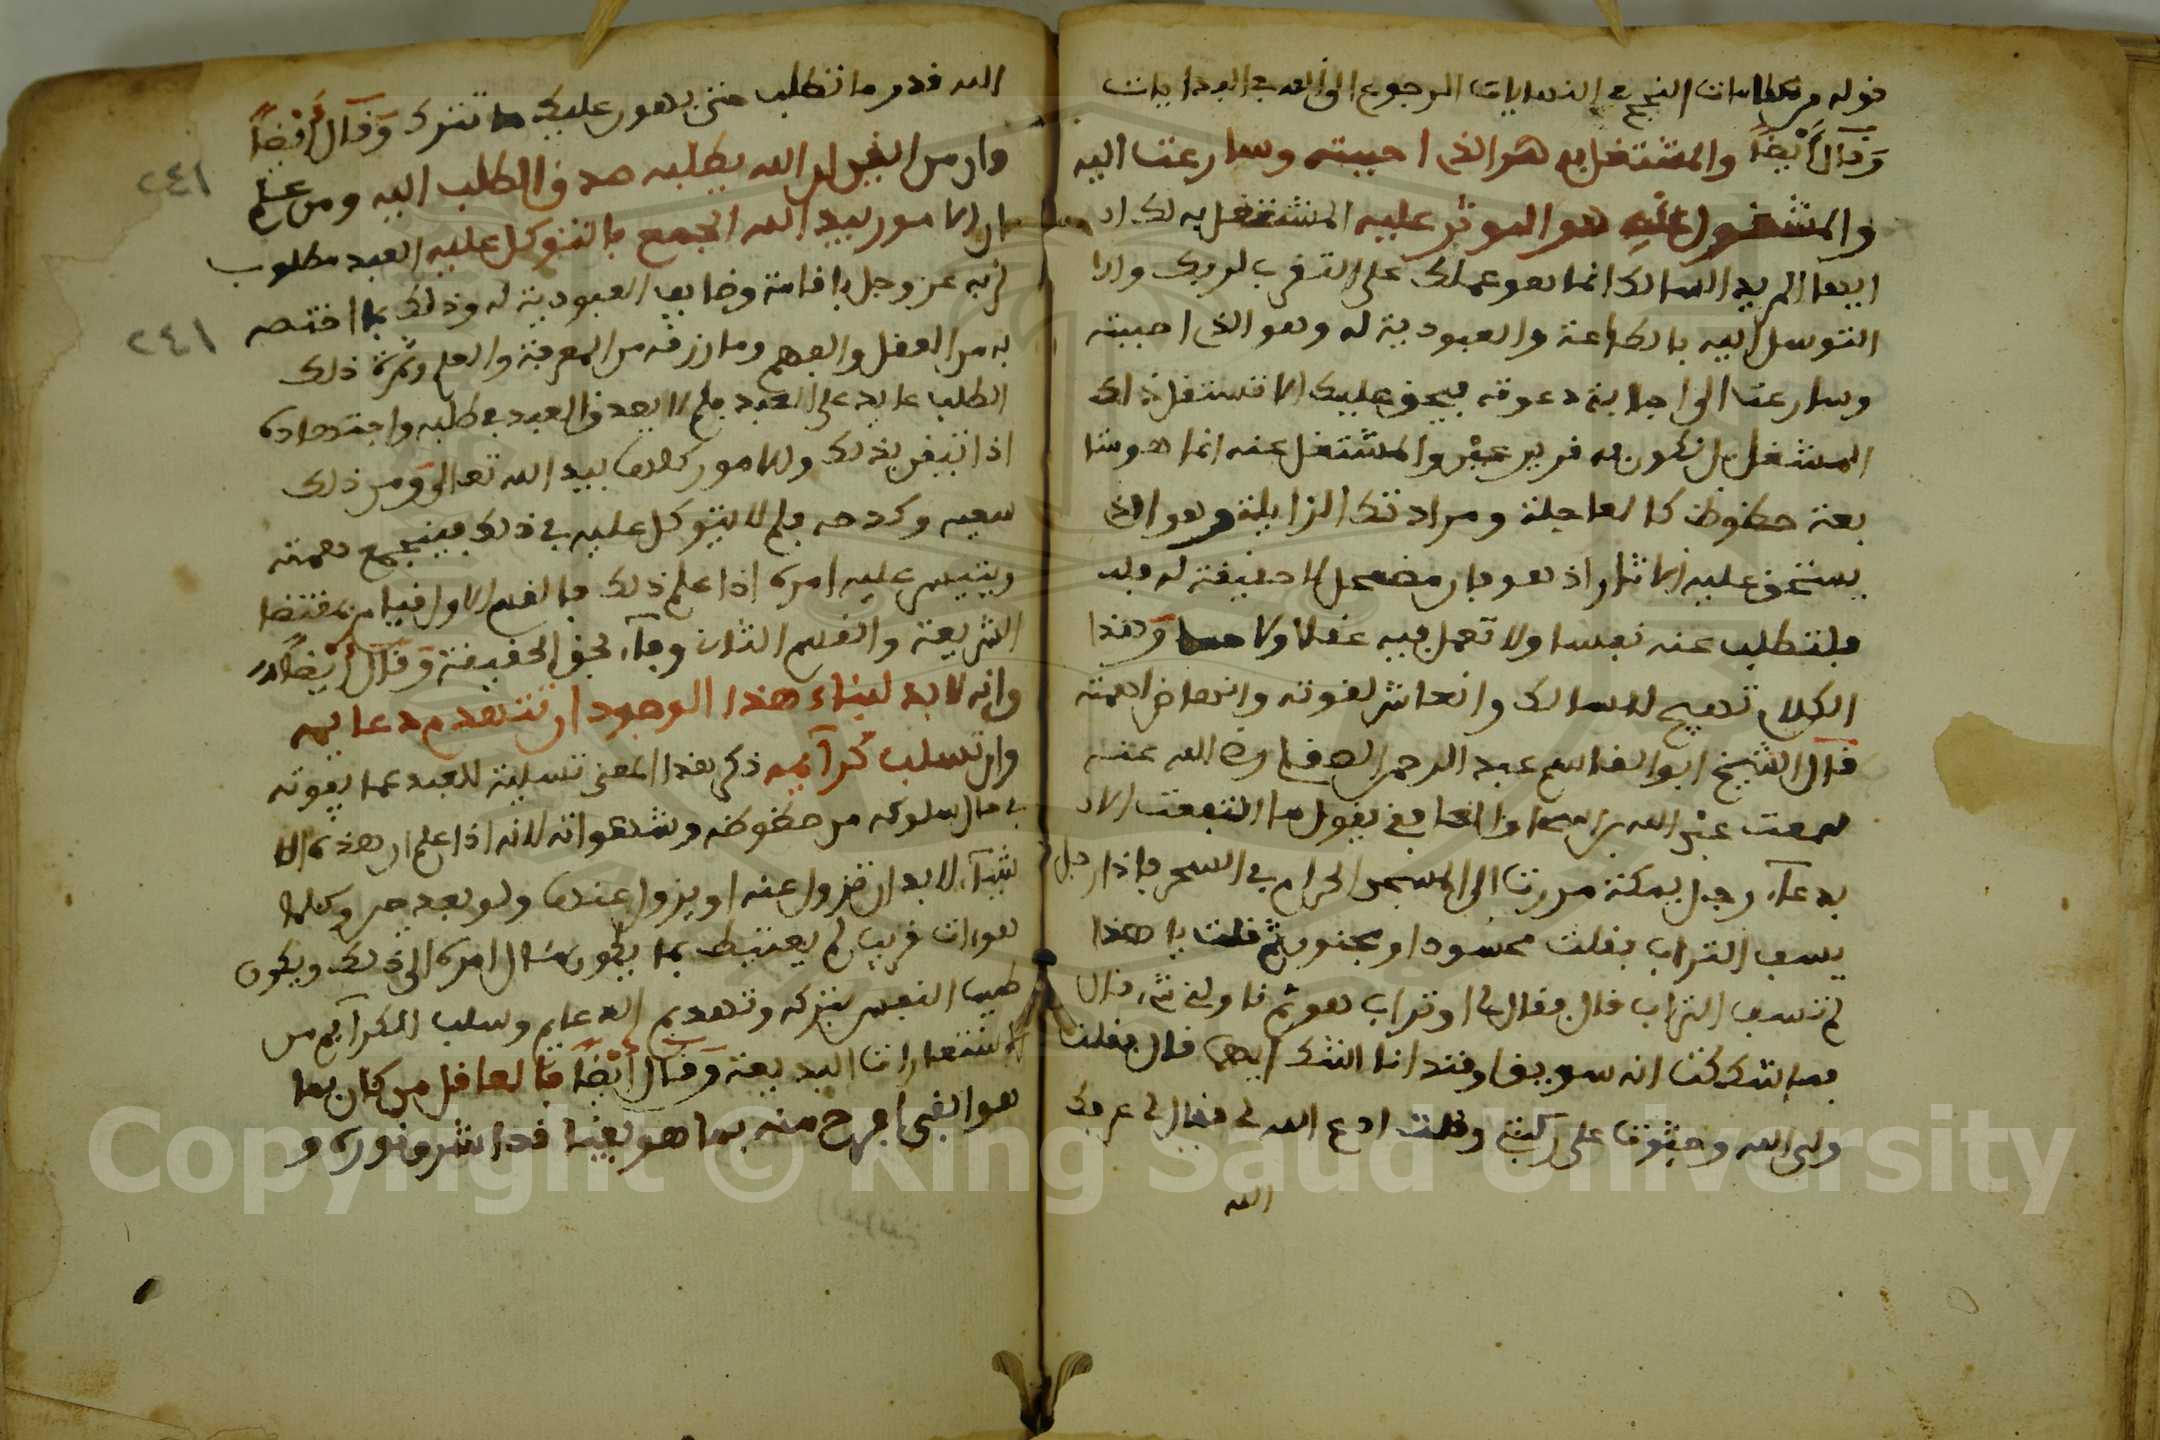 قوله من علامات النجح في النهايات الرجوع الى الله في البدايات
وَقَالَ أَيْضًا والمشتغل به هو الذي احببته وسارعت اليه
والمشغول عنه هو الموثر عليه المشتغل به لك
ايها المريد السالك انما هو عملك على التقرب لربك و
التوسل اليه بالطاعة والعبودية له وهو الذي احببته
وسارعت الى اجابة دعوته فيحق عليك الا تستغل ذلك
المشغل بل تكون به قرير عين والمشتغل عنه انما هو
حظوظك العاجلة ومراداتك الزايلة وهو الذي
يستحق عليه الايثار اذ هو فان مضمحل لا حقيقة له فلا
فلتطلب عنه نفسا ولا تعمل فيه عقلا ولا حسا وهذا
الكلام تهييج للسالك وانعاش لقوته وانهاض لهمته
قال الشيخ ابو القاسم عبد الرحمن الصقلي رضي الله عنه
سمعت عبد الله يقول ما انتفعت الا
بدعاء رجل بمكة مررت الى المسجد الحرام في السحر فاذا رجل
يسف التراب فقلت او مجنون ثم قلت يا هذا
لم تسف التراب قال فقال لي او تراب هو ثم ناولني شيء قال
فما اشك كنت انه سويق او قند انا اشك ايهما قال فقلت
ولي الله وجثوت على ركبتي وقلت ادع الله لي فقال لي عرفك
الله
الله قدر ما تطلب حتى يهون عليك ما تترك وَقَالَ أَيْضًا
وان من ايقن ان الله يطلبه صدق الطلب اليه ومن علم
ان الامور بيد الله انجمع بالتوكل عليه العبد مطلوب
لربه عز وجل باقامة وظايف العبودية له وذلك بما اختصه
به من العقل والفهم وما رزقه من المعرفة والعلم وثمرة ذلك
الطلب عايدة على العبد فلم لا يصدق العبد في طلبه واجتهاده
اذا تيقن بذلك والامور كلها بيد الله تعالى ومن ذلك
سعيه وكدحه فلم لا يتوكل عليه في ذلك فينجمع همته
ويتيسر عليه امره اذا علم ذلك فالقسم الاول قيام بمقتضى
الشريعة والقسم الثاني وفاء بحق الحقيقة وَقَالَ أَيْضًا
وانه لا بد لبناء هذا الوجود ان تنهدم دعايمه
وان تسلب كرايمه ذكر هذا المعنى تسلية للعبد عما يفوته
في حال سلوكه من حظوظه وشهواته لانه اذا علم ان هذه الا
شياء لا بد ان تزول عنه او يزول عنها ولو بعد حين وكلما
هو ات قريب لم يغتبط بما يكون مثال امره الى ذلك ويكون
طيب النفس بتركه وتهديم الدعايم وسلب الكرايم من
الاستعارات البديعة وَقَالَ أَيْضًا فالعاقل من كان بما
هو ابقى افرح منه بما هو يفنى قد اشرق نوره و
٢٤١
٢٤١
Copyright © King Saud University